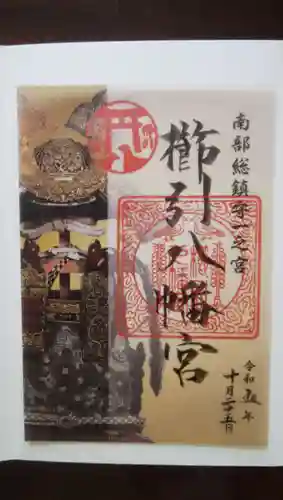 南部総鎮守一之宮
櫛引八幡宮
令和五年
十月二十五日